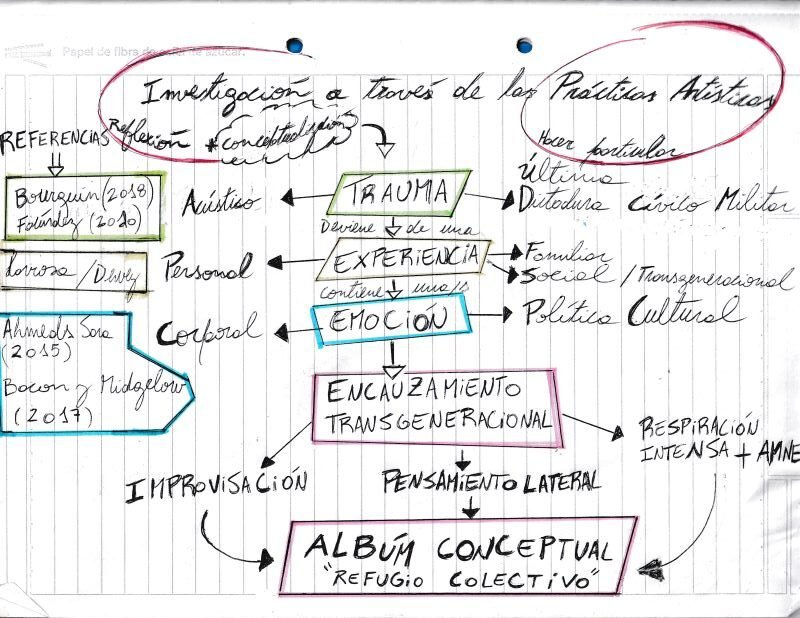 Papel de fibra de caña de azúcar.
Investigación a través de las Prácticas Artísticas
Reflexión + conceptualización
Hacer particular
REFERENCIAS
Bourguin (2018)
Faúndez (2010)
Acústico
TRAUMA
Última
Dictadura Cívico Militar
Deviene de una
Larrosa / Dewey
Personal
EXPERIENCIA
Familiar
Social / Transgeneracional
contiene una/s
Ahmeds Sara
(2015)
Bacon y Midgelow
(2017)
Corporal
EMOCIÓN
Política Cultural
ENCAUZAMIENTO
TRANSGENERACIONAL
RESPIRACIÓN
INTENSA + AMNE
IMPROVISACIÓN
PENSAMIENTO LATERAL
ALBÚM CONCEPTUAL
"REFUGIO COLECTIVO"